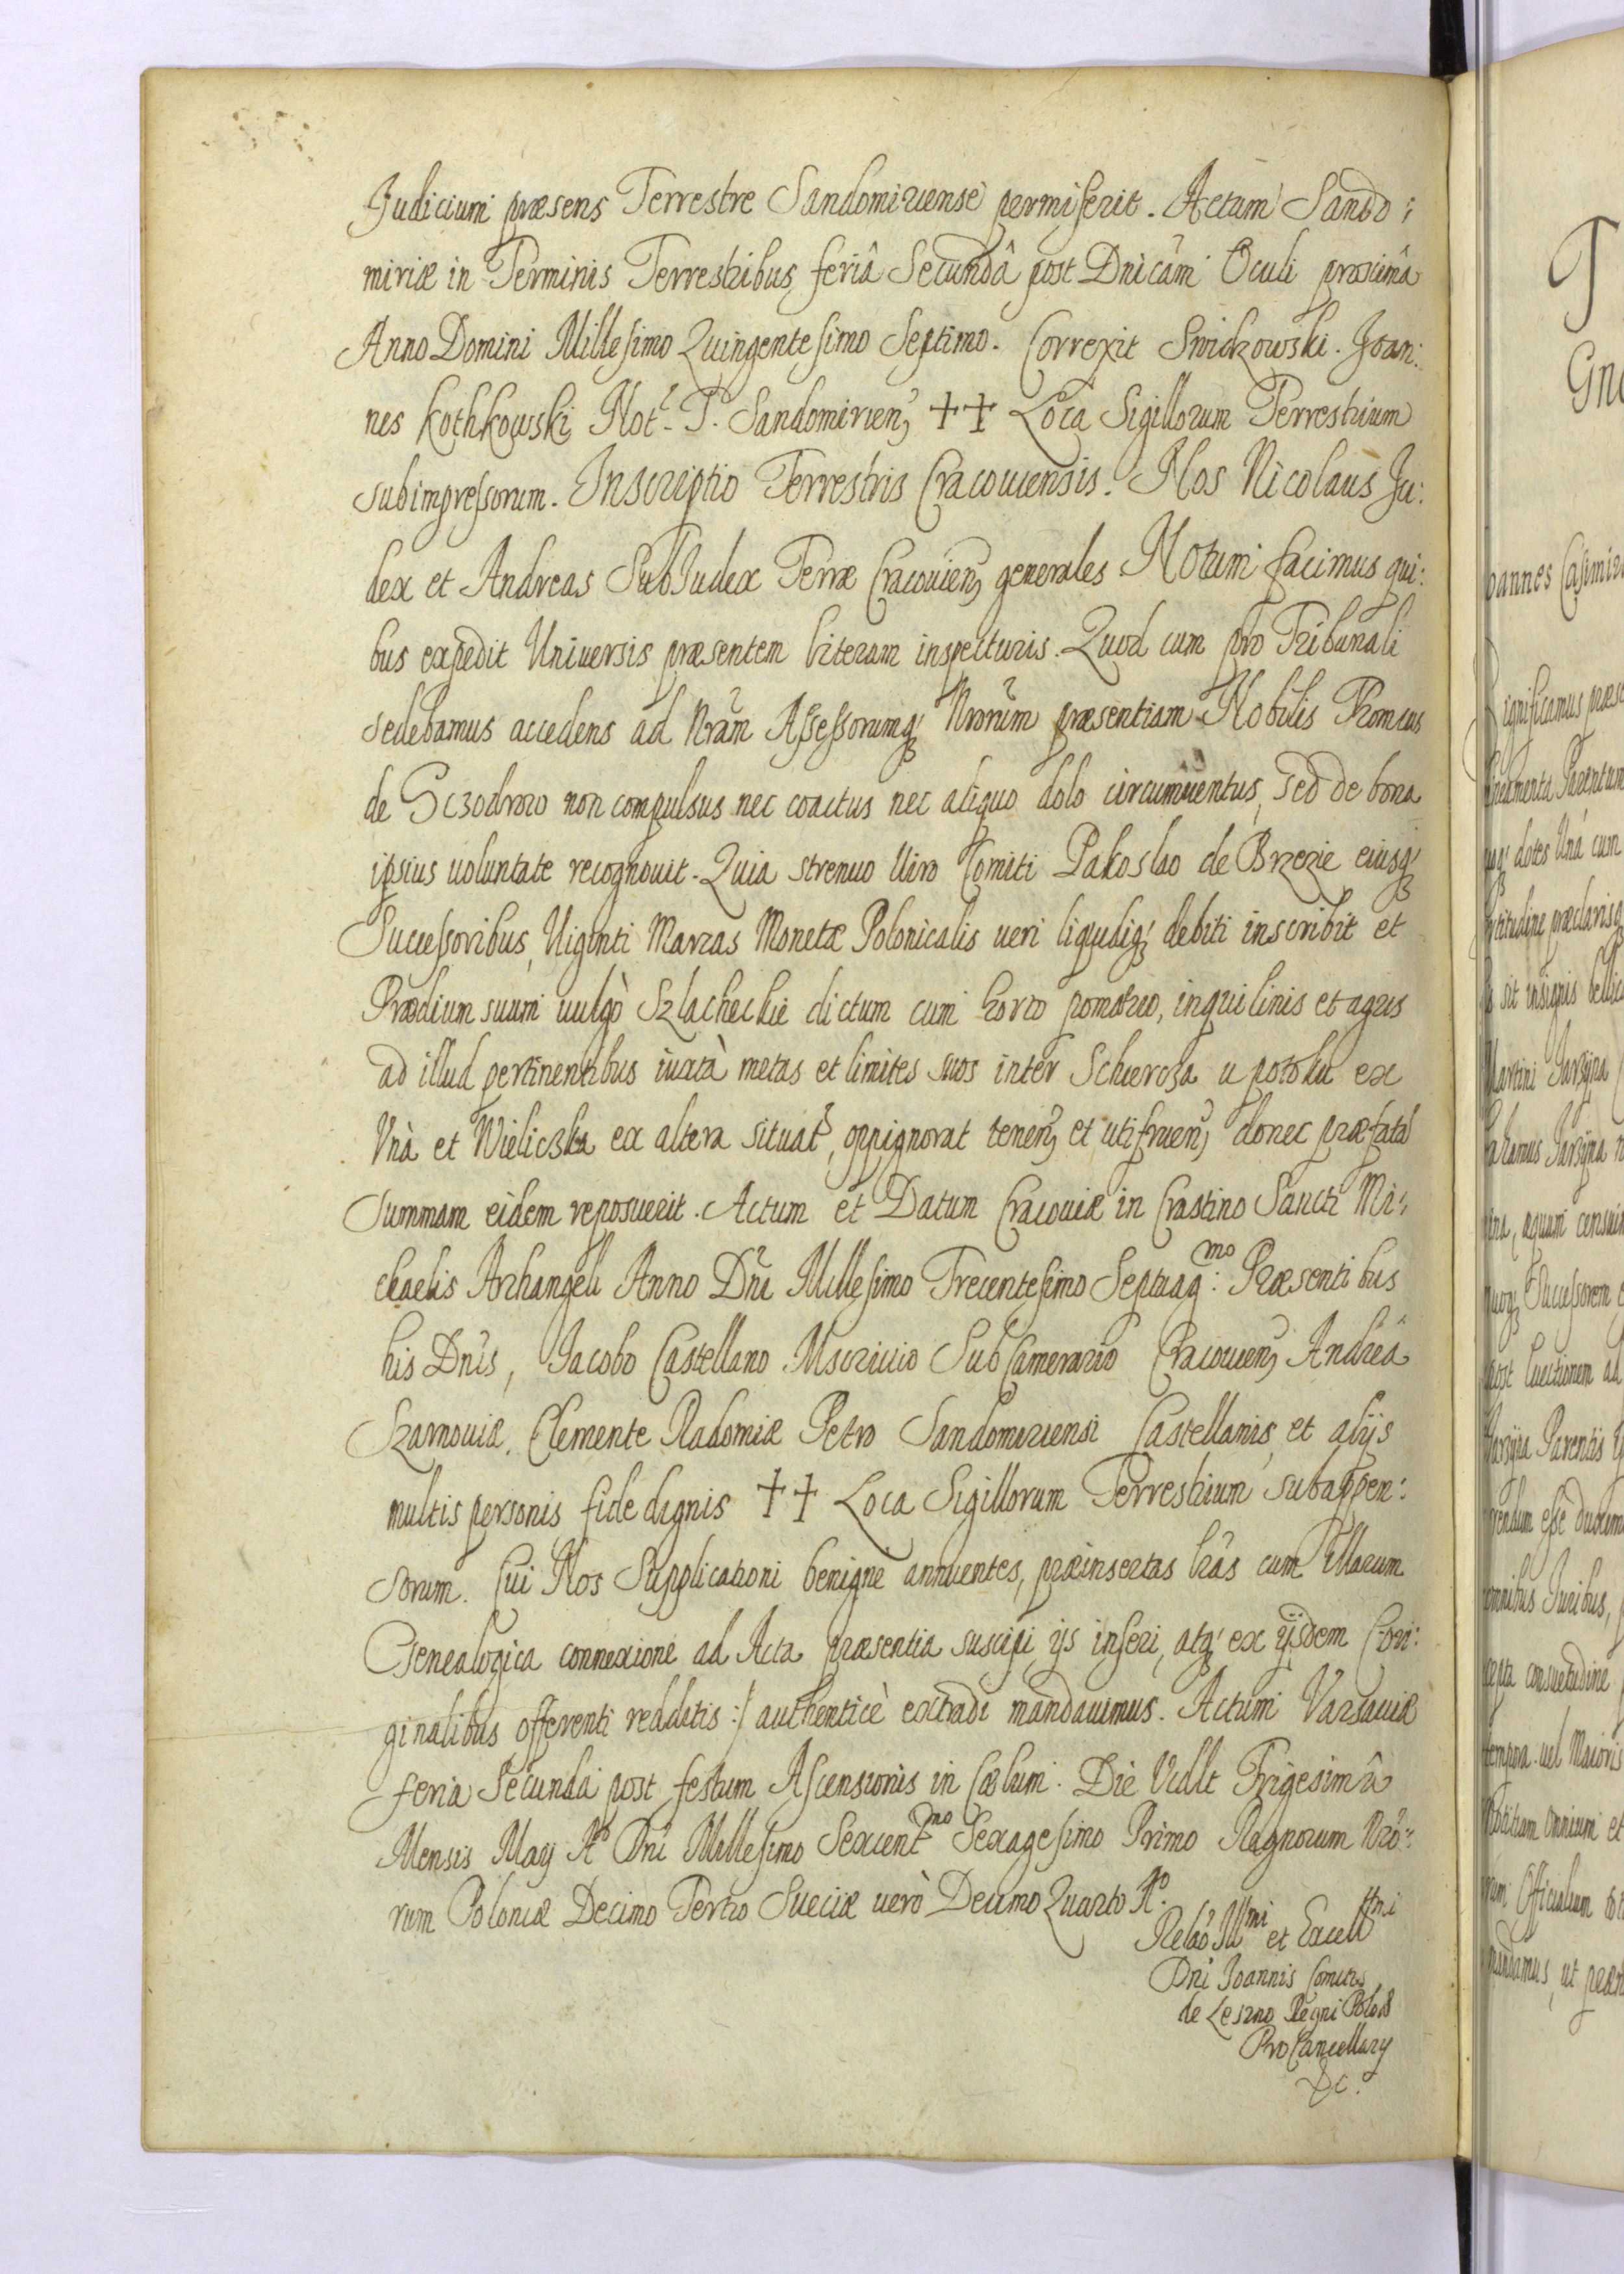 Judicium præsens Terrestre Sandomiriense permiserit. Actum Sando:
miriæ in Terminis Terrestribus feriâ Secundâ post Dnicam Oculi proximâ
Anno Domini Millesimo Quingentesimo Septimo. Correxit Swidzowski. Joan:
nes Kothkowski Not. T. Sandomirien ++ Loca Sigillorum Terrestrium
subimpressorum. Inscriptio Terrestris Cracoviensis. Nos Nicolaus Ju:
dex et Andreas SubJudex Terræ Cracouien generales Notum facimus qui:
bus expedit Universis præsentem literam inspecturis. Quod cum pro Tribunali
sedebamus accedens ad Nram Assessorumq Nrorum præsentiam Nobilis Thomas
de non compulsus nec coactus nec aliquo dolo circumuentus, sed de bona
ipsius uoluntate recognouit. Quia strenuo Uiro Comiti Pakoslao de Brzezie eiusq
Successoribus, Uiginti Marcas Monetæ Polonicalis ueri liquidiq debiti inscribit et
Prædium suum uulgò Szlacheckie dictum cum horto pomario, inquilinis et agris
ad illud pertinentibus iuxtà metas et limites suos inter u potoku ex
Vnà et Wieliczka ex altera situat, oppignorat tenen et utifruen donec præfatâ
summam eidem reposuerit. Actum et Datum Cracouiæ in Crastino Sancti Mi:
chaelis Archangeli Anno Dni Millesimo Trecentesimo Septuag:mo Præsentibus
his Dnis, Jacobo Castellano Mscziuio SubCamerario Cracouien, Andreâ
Szarnouiæ, Clemente Radomiæ Petro Sandomiriensi Castellanis, et alijs
multis personis fide dignis ++ Loca Sigillorum Terrestrium subappen:
sorum. Cui Nos Supplicationi benigne annuentes, præinsertas lras cum illarum
Genealogica connexione ad Acta præsentia suscipi ijs inseri, atq ex ijsdem (:ori:
ginalibus offerenti redditis:) authenticè extradi mandauimus. Actum Varsauiæ
feria Secunda post festum Ascensionis in Cœlum. Die Vidlt Trigesimâ
Mensis Maij Ao Dni Millesimo Sexcentmo Sexagesimo Primo Regnorum Nro:
rum Poloniæ Decimo Tertio Sueciæ uerò Decimo Quarto Ao.
Relao Illmi et Excellmi
Dni Joannis Comitis
de Leszno Regni Polo
ProCancellarij
&c.